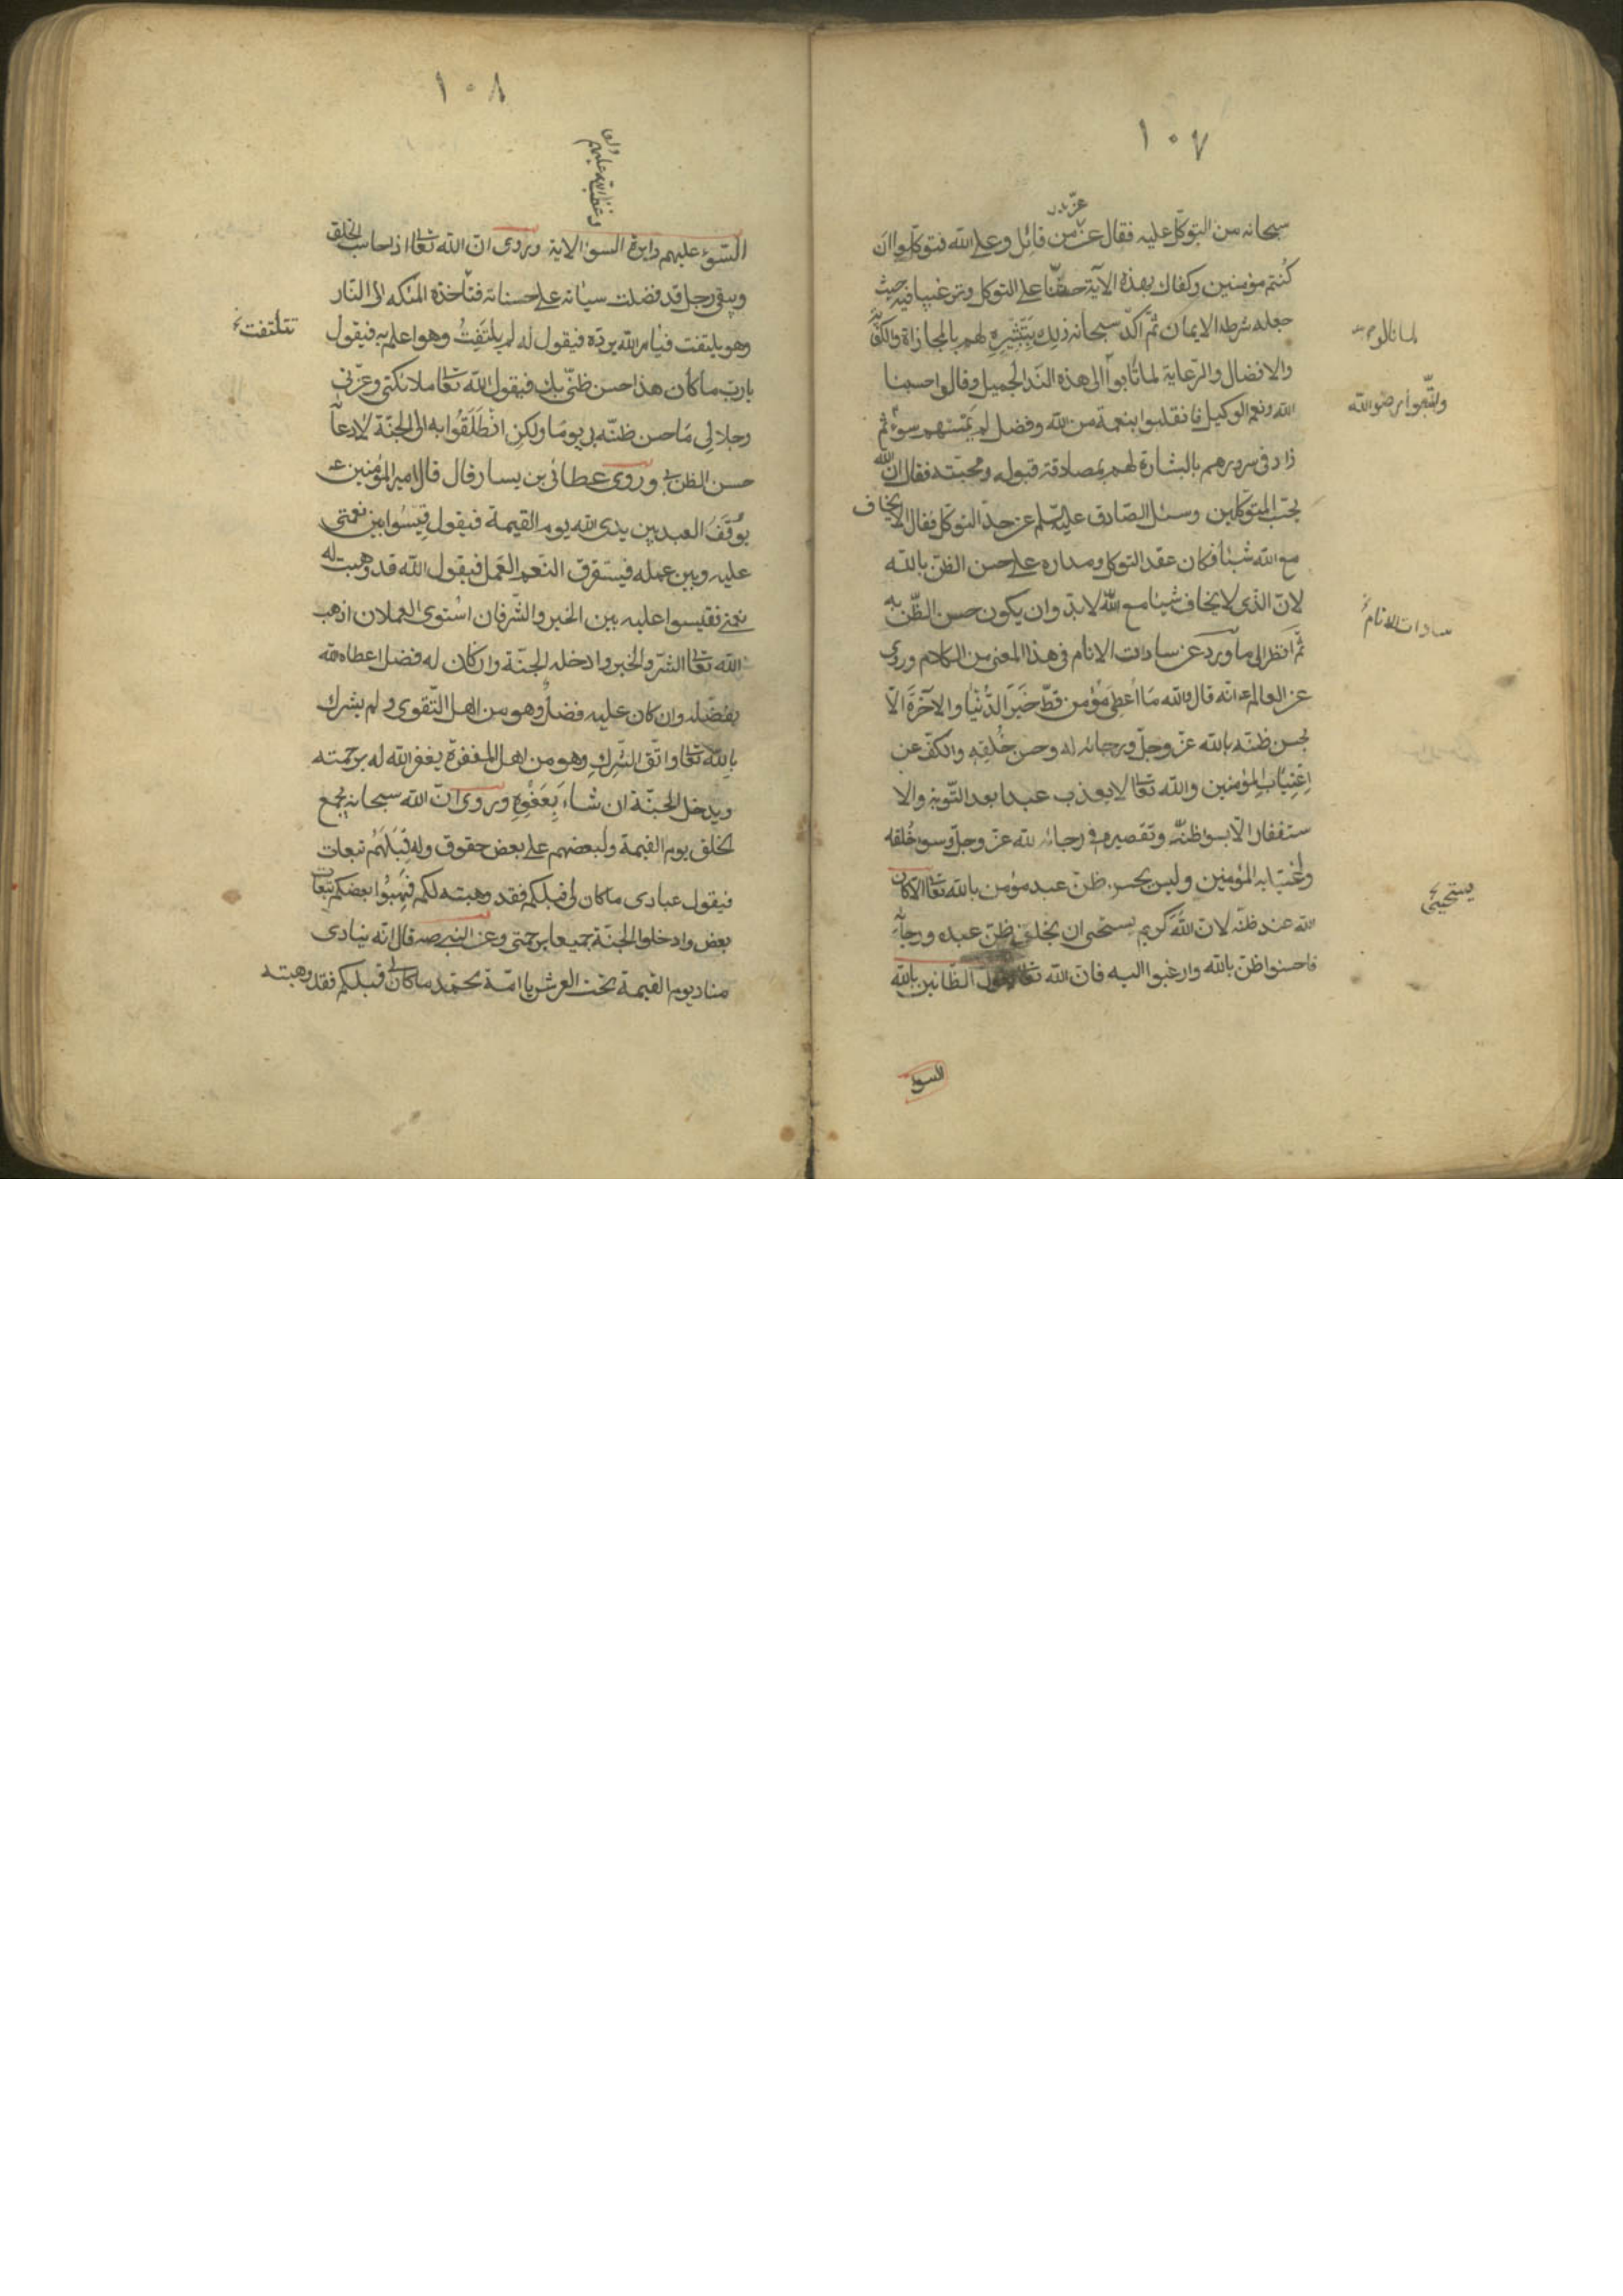 ١٠٧
عزّ
سبحانه من التوكّل عليه فقال عزّ من قائل وعلى الله فتوكّلوا ان
كُنتم مؤمنين وكفاك بهذه الآية حضّا على التوكل وترغيبا فيه حيث
جعله شرط الايمان ثمّ اكّد سبحانه ذلك بتبشيره لهم بالمجازاة والكفاية
لما نالوا
والافضال والرعاية لما ثابوا الى هذه الندا الجميل وقالوا حسبنا
واتّبعوا رضوان الله
الله ونعم الوكيل فانقلبوا بنعمة من الله وفضل لم يمسسهم سوءٌ ثم
زاد فى سرورهم بالبشارة لهم بمصادقة قبوله ومحبّته فقال ان الله
يحبّ المتوكّلين وسئل الصّادق عليه السّلم عن حدّ التوكّل فقال الا يخاف
مع الله شيئا فكان عقد التوكل ومداره على حسن الظنّ بالله
لانّ الذى لا يخاف شيئا مع الله لابدّ وان يكون حسن الظّنّ به
سادات الانام
ثمّ انظر الى ما ورد عن سادات الانام فى هذا المعنى من الكلام وروى
عن العالم ع انّه قال والله مَا اُعْطِىَ مؤمن قطّ خَيرَ الدُّنيا والآخرة الاّ
بحسن ظنّه بالله عزّ وجلّ ورجائه له وحسن خُلقه والكفّ عن
اغتِيَابِ المؤمنين والله تعالى لا يعذب عبدا بعد التّوبة والا
ستغفار الّا بسوء ظنّه وتقصيره فى رجائه لله عزّ وجلّ وسوء خُلقه
واغتيابه المؤمنين وليس يحسن ظنّ عبد مؤمن بالله تعالى الّا كان
يستحيى
الله عند ظنّه لان اللهَ كريم يستحى ان يخلف ظنّ عبده ورجاءه
فاحسنوا ظنّ بالله وارغبوا اليه فانّ الله تعالى يقول الظّانين بالله
السوء
١٠٨
وغضب الله عليهم
السّوء عليهم دايرة السوء الاية وروى انّ الله تعالى اذا حاسب الخلق
ويبقى رجل قد فضلت سيئاته على حسناته فتأخذه الملئكه الى النّار
تتلتفت
وهو يلتفت فيامر الله بردّه فيقول له لم يلتَفِتُ وهو اعلم به فيقول
يا ربّ ما كان هذا حسن ظنّى بك فيقول الله تعالى ملائكتى وعزّتى
وجلالى مَا حسن ظنّه بى يوما ولكنِ انْطَلَقُوا به الى الجنّة لادّعاء
حسن الظن بى وروى عطائى بن يسار قال قال امير المؤمنين ع
يُوقَفُ العبد بين يدى الله يوم القيمة فيقول قِيسُوا بين نعمتى
عليه وبين عمله فيستغرق النعم العَمل فيقول الله قد وهبت له
نعمى فقيسوا عليه بين الخير والشّر فان استوى العملان اذهب
الله تعالى الشرّ بالخير وادخله الجنّة وان كان له فضل اعطاه الله
بفضله وان كان عليه فضلٌ وهو من اهل التّقوى ولم يشرك
بالله تعالى واتّق الشرك وهو من اهل المغفرة يغفر الله له برحمته
ويدخل الجنّة ان شاء بِعَفْوِهِ وروى انّ الله سبحانه يجمع
الخلق يوم القيمة ولبعضهم على بعض حقوق وله قِبَلَهُم تبعات
فيقول عبادى ما كان لى قبلكم فقد وهبته لكم فَهَبُوا بعضكم تبعات
بعض وادخلوا الجنّة جميعا برحمتى وعن النبى ص قال انّه ينادى
مناد يوم القيمة تحت العرش يا امّة محمّد ما كان لى قبلكم فقد وهبته